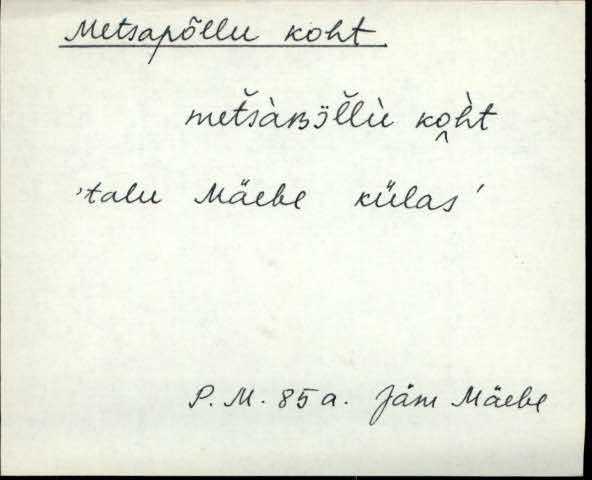 Metsapõllu koht
met̆sàʙö̆llù ko̭h̀t
'talu Mäebe külas'
P. M. 85 a. Jäm Mäebe